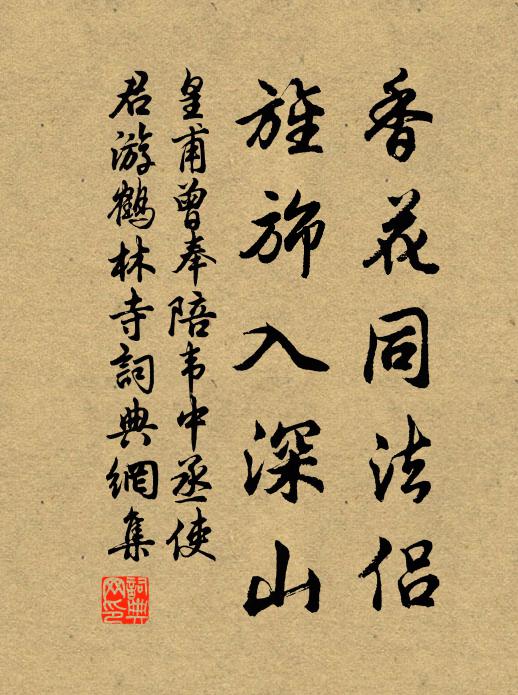 香花同法侣
旌旆入深山
皇甫曾奉陪韦中丞使
君游鹤林寺詞典網集
詞典网印